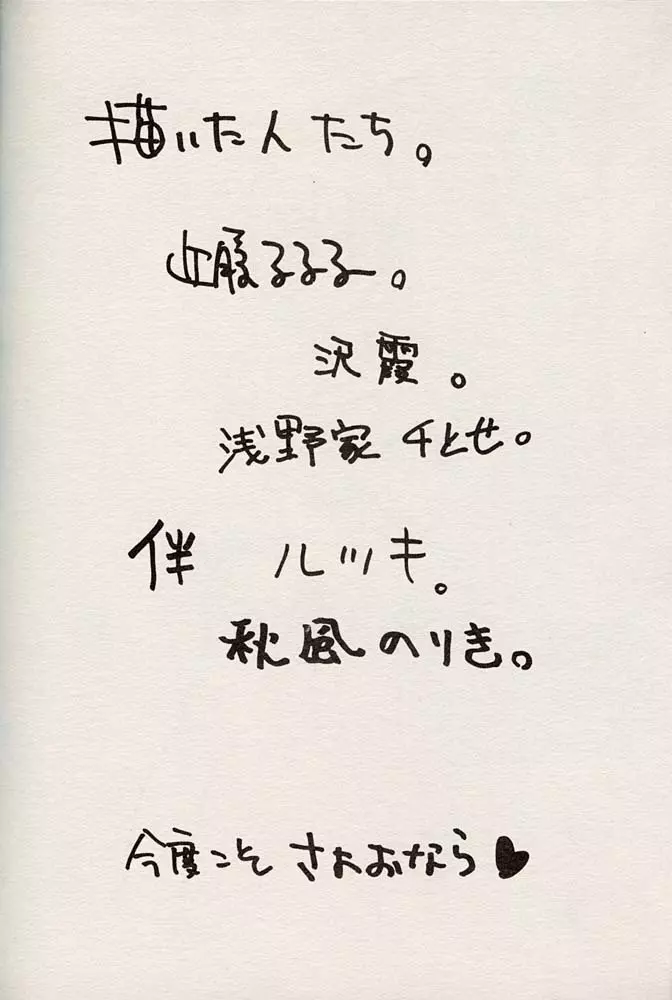 描いた人たち。
るるる。
沢霞。
浅野家 千とせ。
伴 ルツキ。
秋風のりき。
今度こそ さよおなら♥